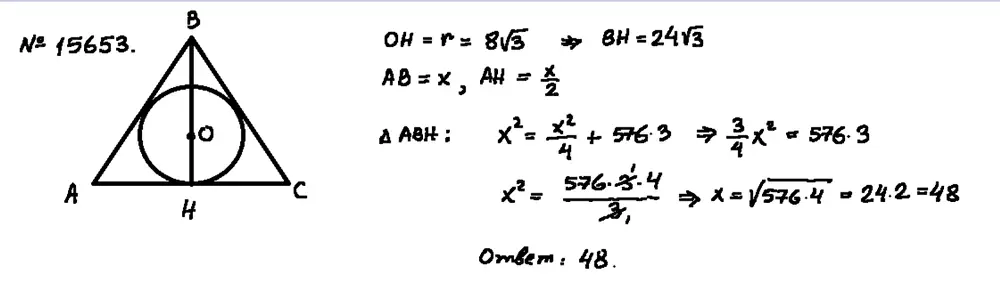 № 15653.
B
O
A
H
C
OH = r = 8√3 ⇒ BH = 24√3
AB = x, AH = x/2
△ ABH: x² = x²/4 + 576·3 ⇒ 3/4 x² = 576·3
x² = 576·3·4/3 ⇒ x = √576·4 = 24·2 = 48
Ответ: 48.